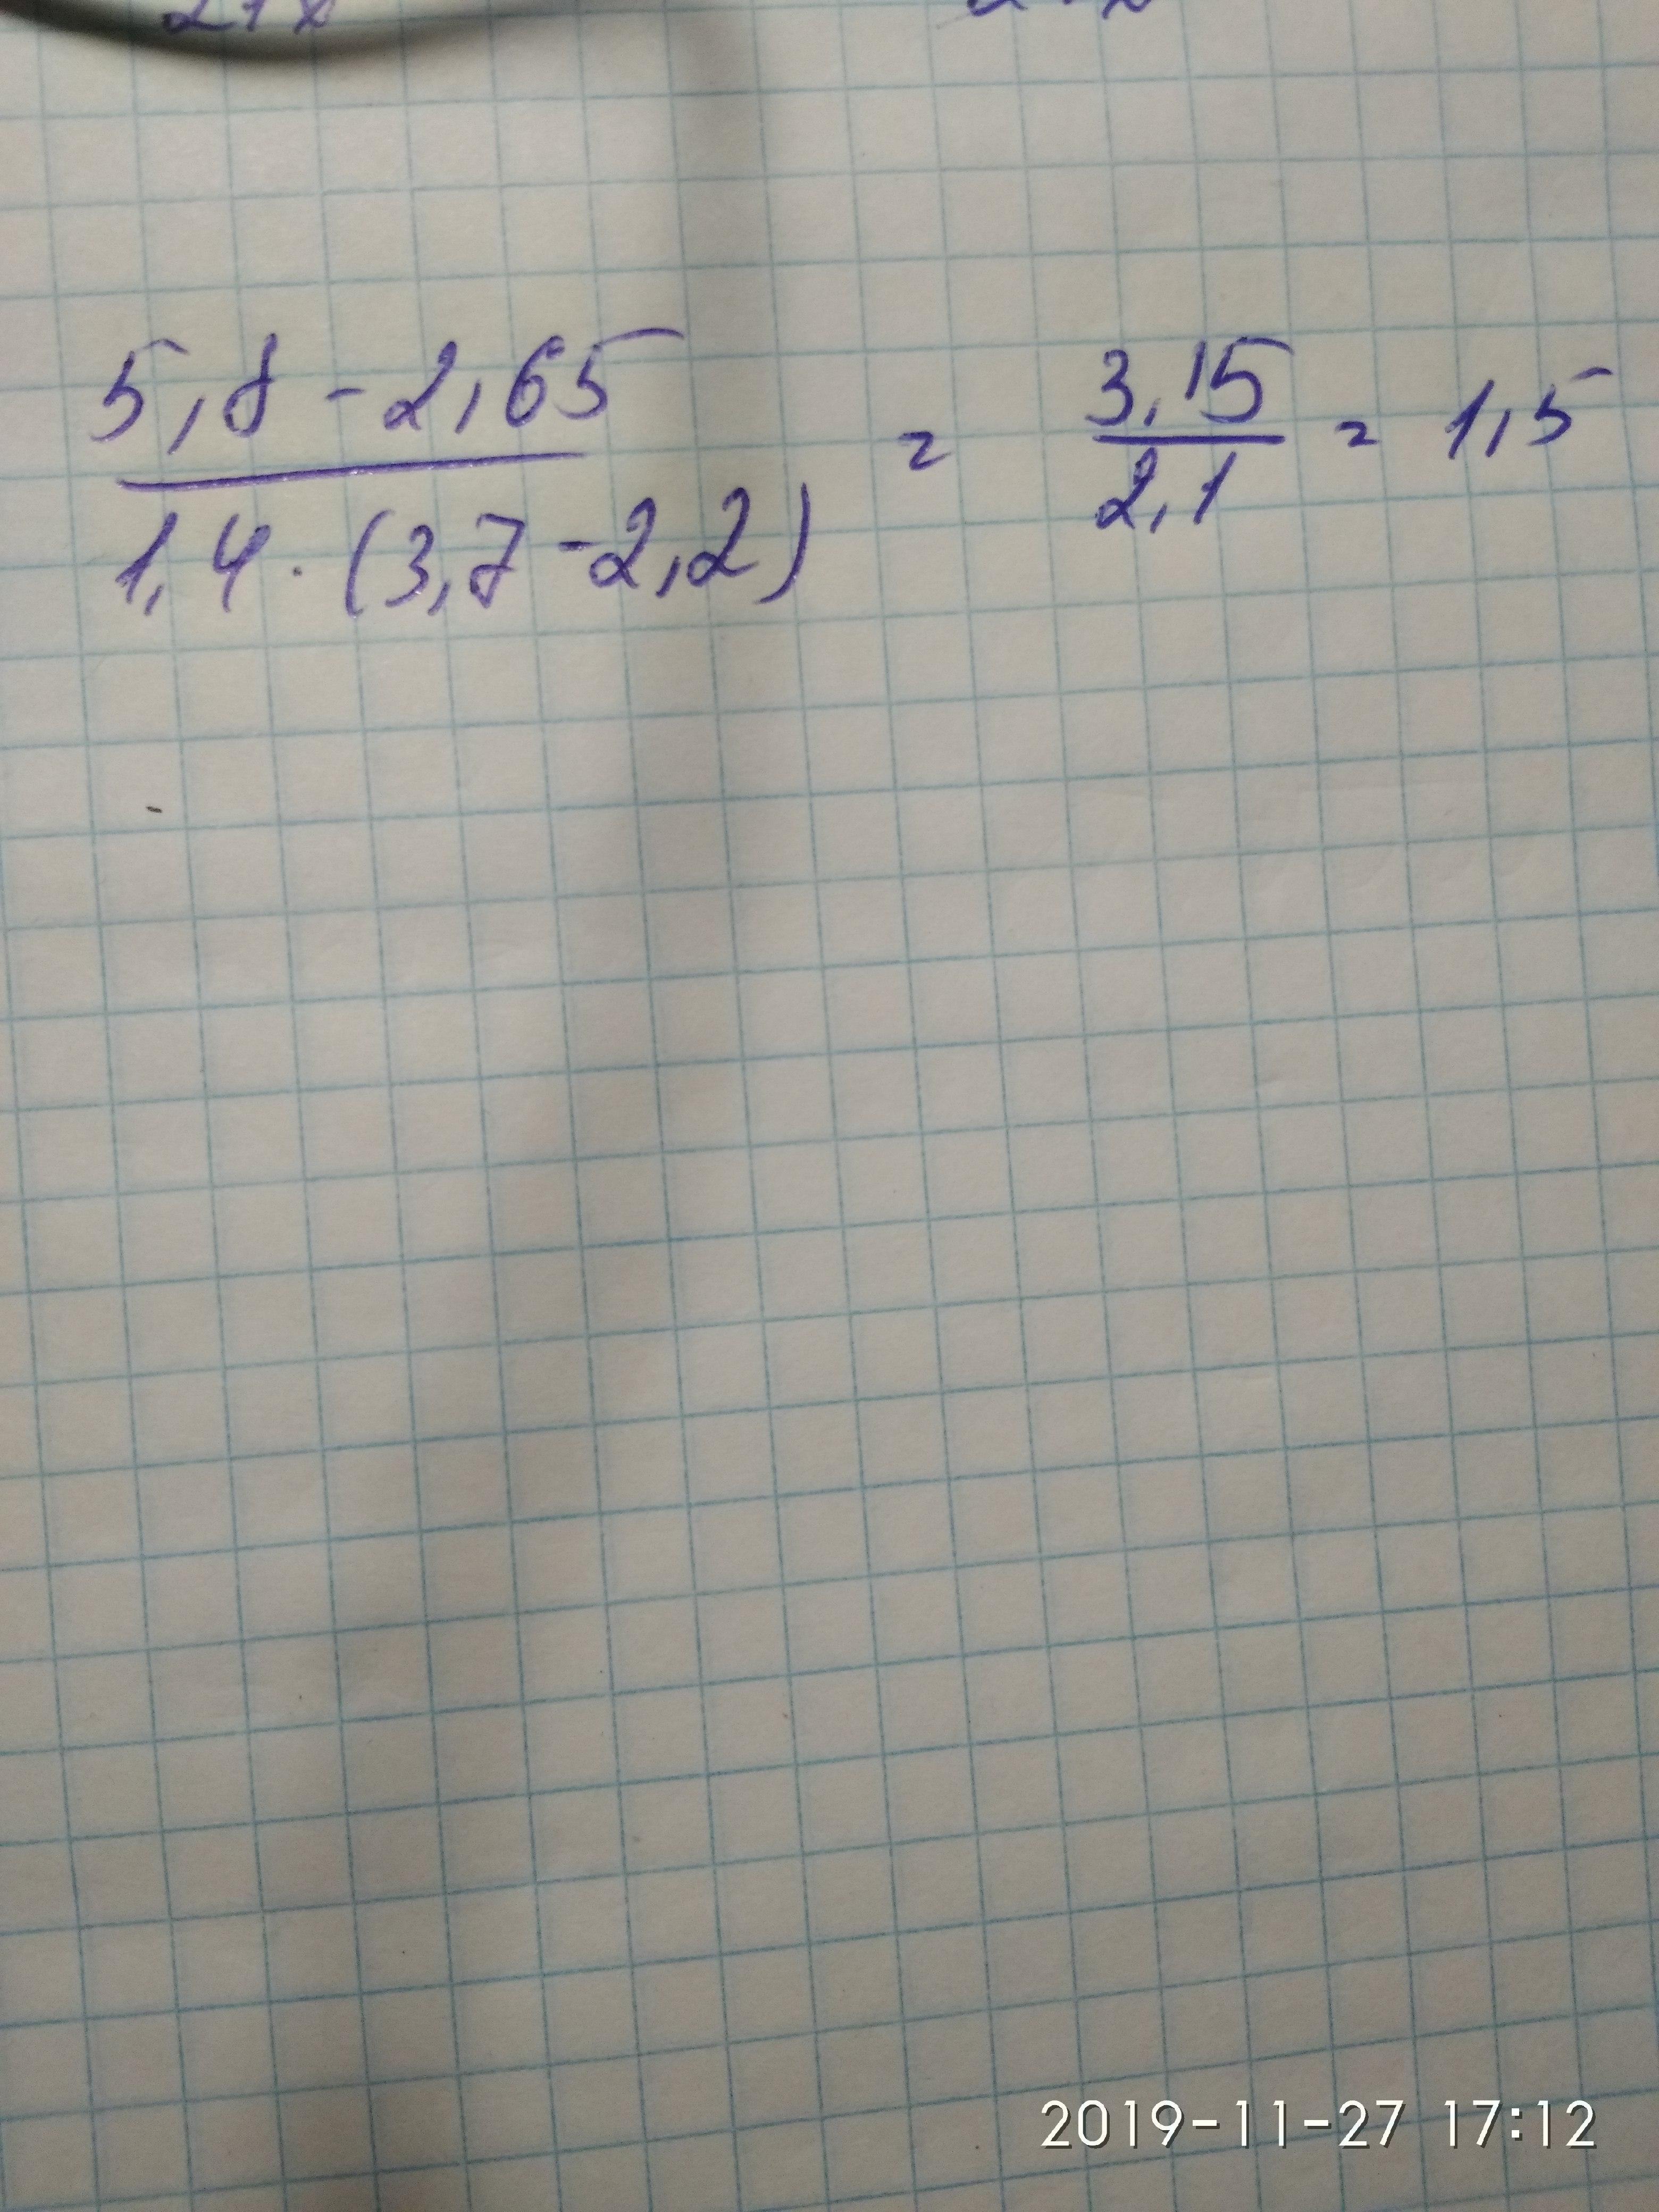 5,8 - 2,65 / 1,4 · (3,7 - 2,2) = 3,15 / 2,1 = 1,5
2019-11-27 17:12